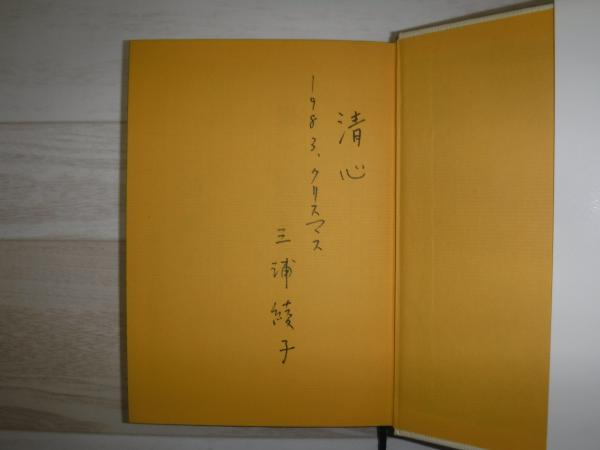 清心
1983、クリスマス
三浦綾子